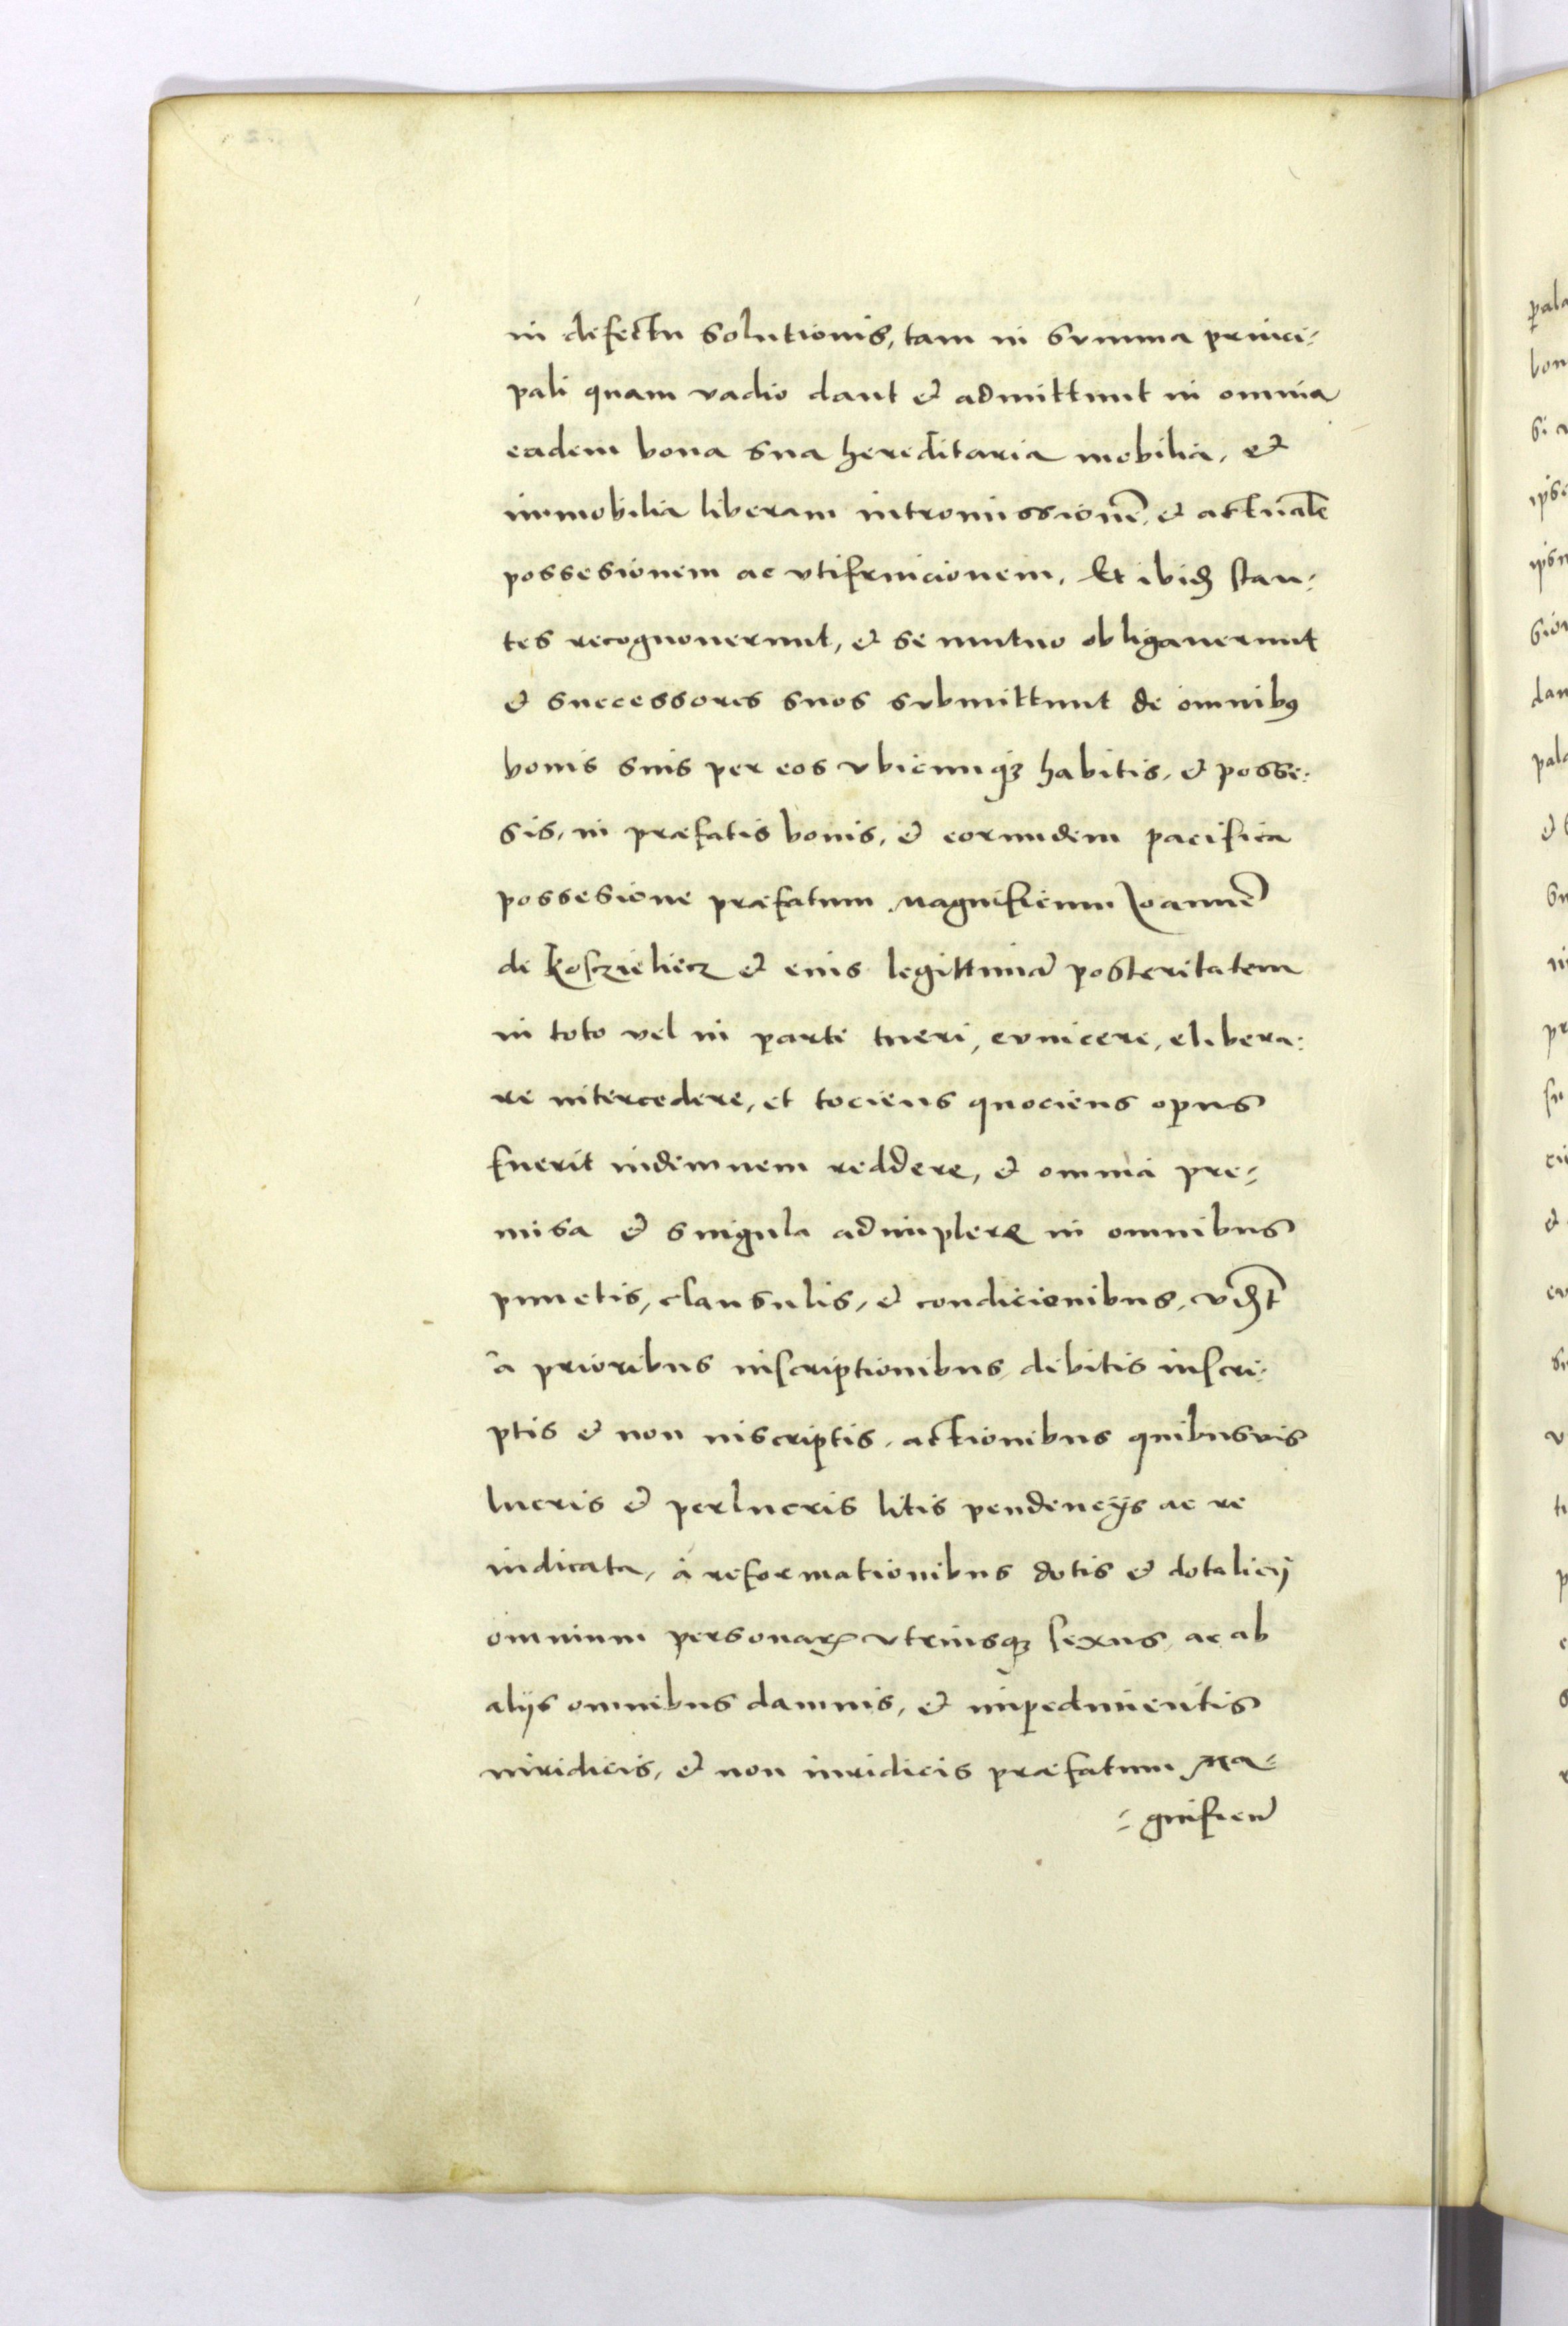 in defectu solutionis, tam in summa princi-
pali quam vadio dant et admittunt in omnia
eadem bona sua hereditaria mobilia, et
immobilia liberam intromissionē, et actualē
possesionem ac vtifruicionem, Et ibidꝫ stan-
tes recognouerunt, et se mutuo obligauerunt
et successores suos submittunt de omnibꝰ
bonis suis per eos vbicunqꝫ habitis, et posse-
sis, in præfatis bonis, et eorundem pacifica
possesione præfatum Magnificum Ioannē
de Kosczieliecz et eius legittimā posteritatem
in toto vel in parte tueri, euincere, elibera-
re intercedere, et tociens quociens opus
fuerit indemnem reddere, et omnia pre-
misa et singula adimplere in omnibus
punctis, clausulis, et condicionibus, vdꝫt
à prioribus inscriptionibus, debitis inscri-
ptis et non inscriptis, actionibus quibusuis
lucris et perlucris litis pendencijs ac re
iudicata, à reformationibus dotis et dotalicij
omnium personaꝝ vtriusqꝫ sexus, ac ab
alijs omnibus damnis, et impedimentis
iuridicis, et non iuridicis præfatum Ma-
-gnificū